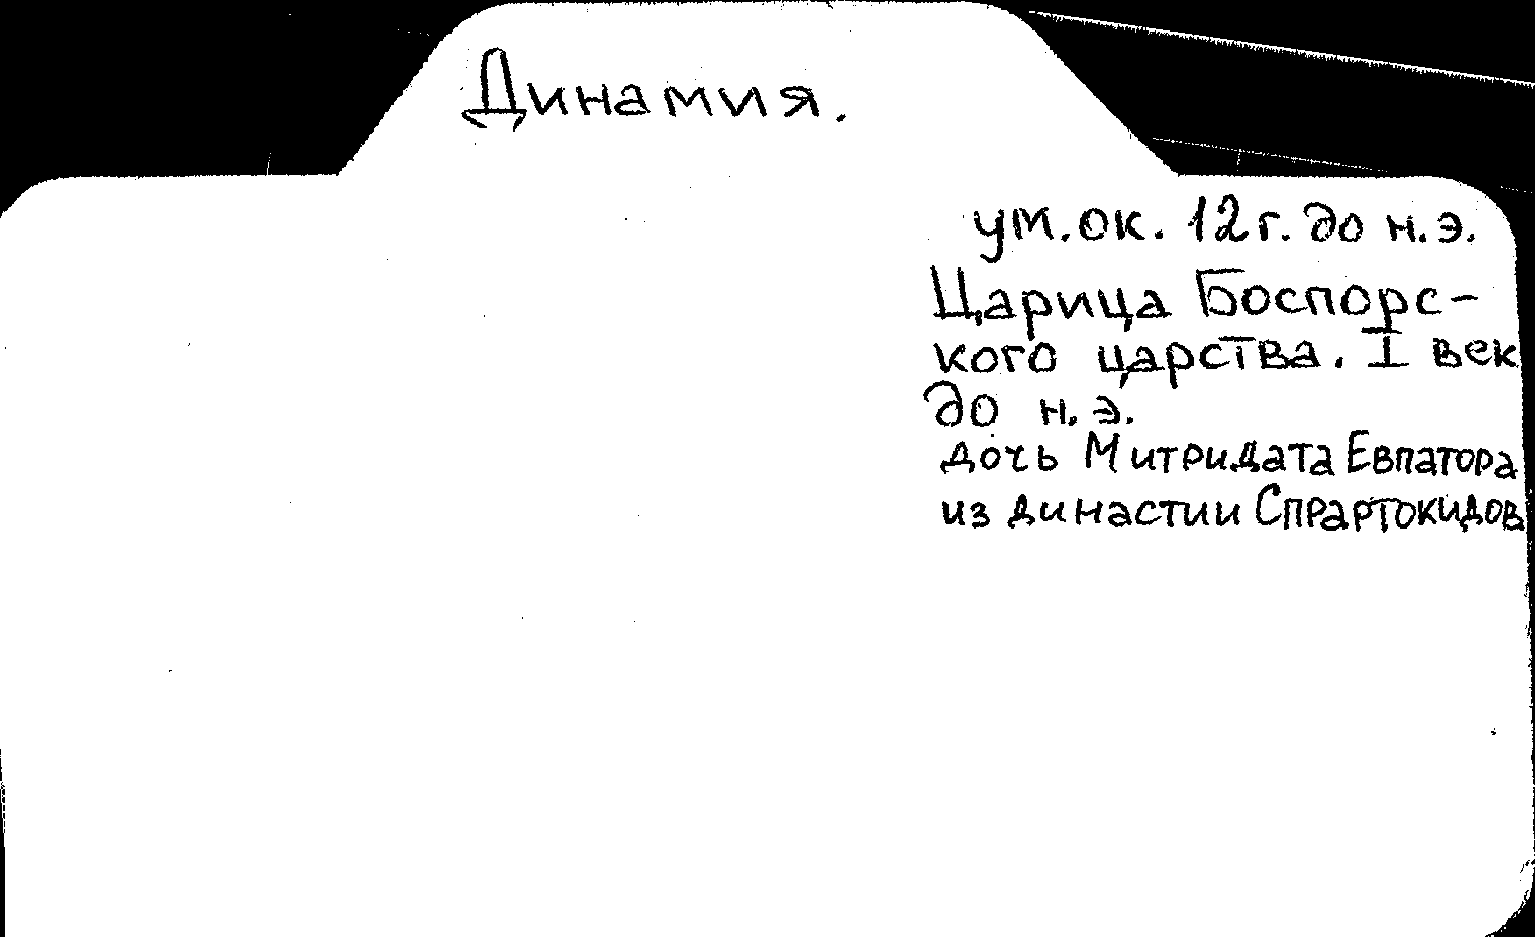 Динамия.
ум. ок. 12 г. до н.э.
Царица Боспорс-
кого царства. I век
до н.э.
дочь Митридата Евпатора
из династии Спрартокидов